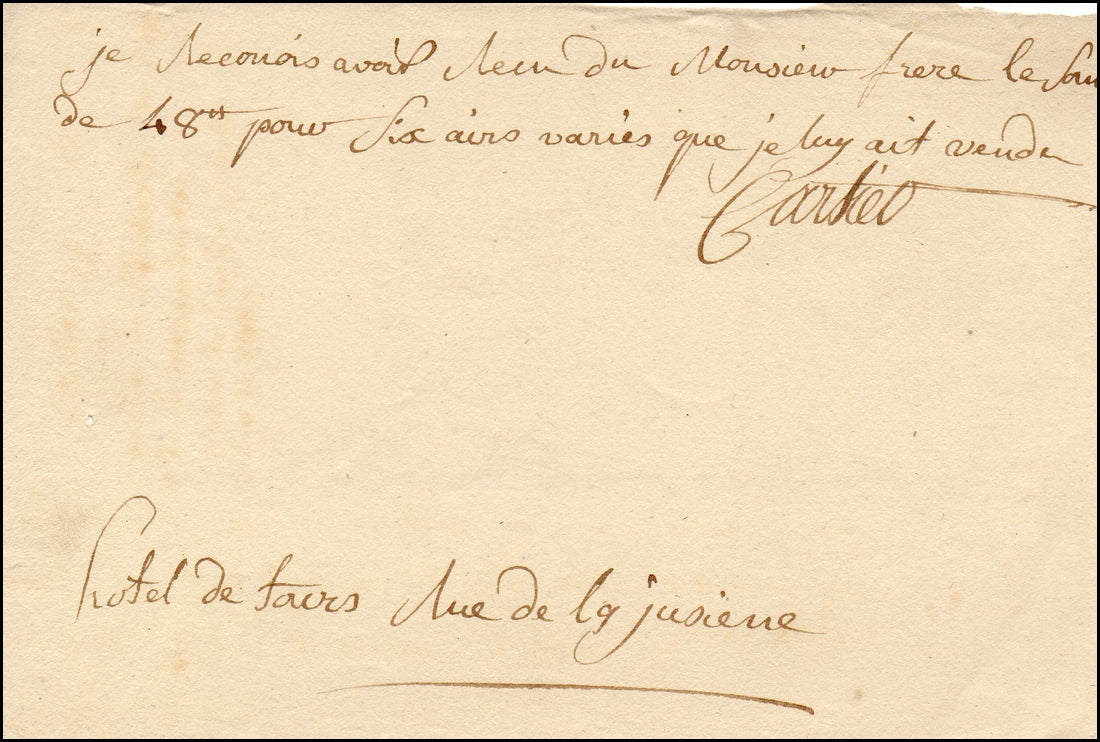 je Reconois avoir Recu du Monsieur frere le som
de 48tt pour Six airs variés que je luy ait vendu
Cartier
hotel de tours Rue de la jusiene